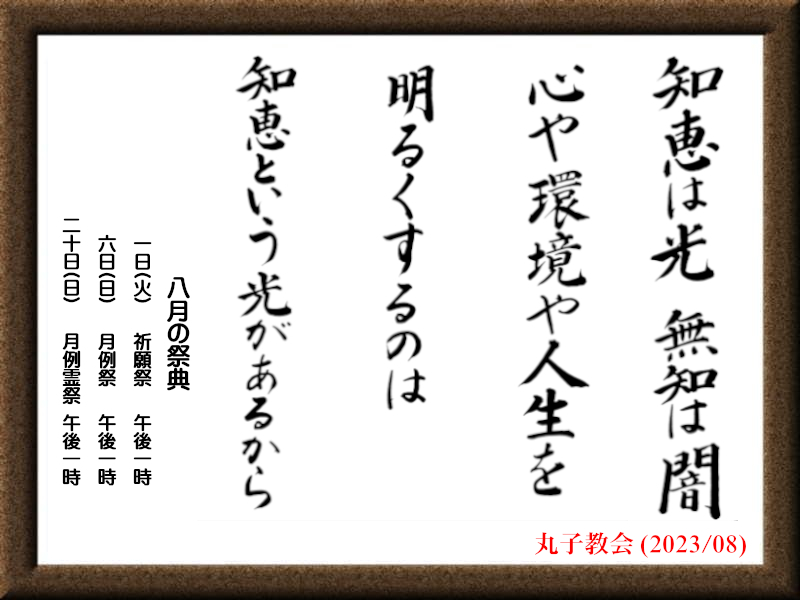 知恵は光 無知は闇
心や環境や人生を
明るくするのは
知恵という光があるから
八月の祭典
一日(火) 祈願祭 午後一時
六日(日) 月例祭 午後一時
二十日(日) 月例霊祭 午後一時
丸子教会 (2023/08)